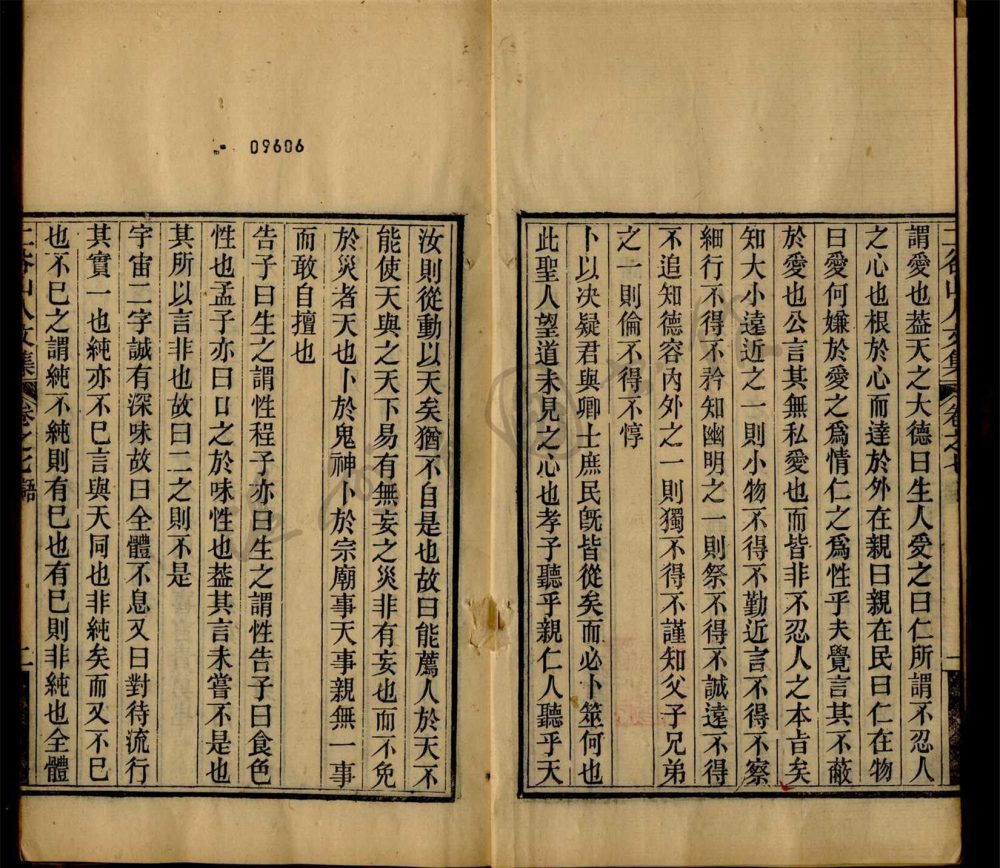 謂愛也葢天之大德曰生人受之曰仁所謂不忍人
之心也根於心而達於外在親曰親在民曰仁在物
曰愛何嫌於愛之爲情仁之爲性乎夫覺言其不蔽
於愛也公言其無私愛也而皆非不忍人之本㫖矣
知大小遠近之一則小物不得不勤近言不得不察
細行不得不矜知幽明之一則祭不得不誠遠不得
不追知德容內外之一則獨不得不謹知父子兄弟
之一則倫不得不惇
卜以决疑君與卿士庶民旣皆從矣而必卜筮何也
此聖人望道未見之心也孝子聽乎親仁人聽乎天
09606
汝則從動以天矣猶不自是也故曰能薦人於天不
能使天與之天下易有無妄之災非有妄也而不免
於災者天也卜於鬼神卜於宗廟事天事親無一事
而敢自擅也
告子曰生之謂性程子亦曰生之謂性告子曰食色
性也孟子亦曰口之於味性也葢其言未嘗不是也
其所以言非也故曰二之則不是
宇宙二字誠有深味故曰全體不息又曰對待流行
其實一也純亦不巳言與天同也非純矣而又不巳
也不巳之謂純不純則有巳也有巳則非純也全體
二谷山人文集 卷之七 語 二